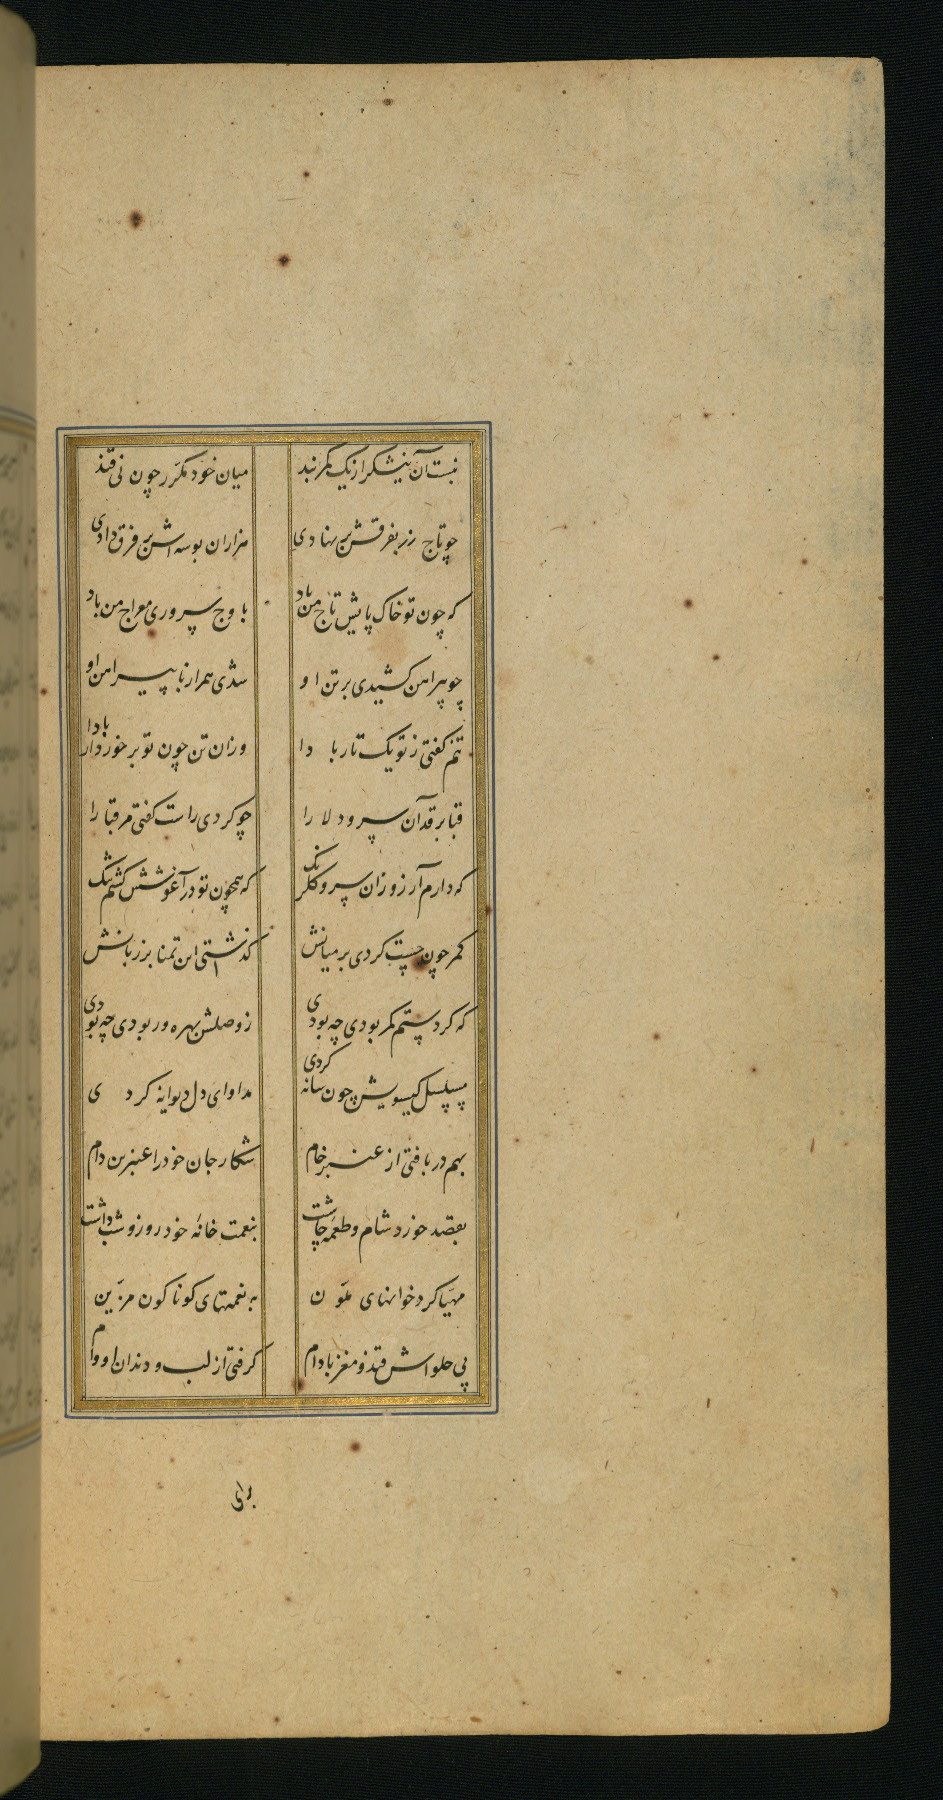 نبست آن نیشکر از یک کمربند میان خود مکرّر چون نی قند
چو تاج زر بفرقش بر نهادی هزاران بوسه اش بر فرق دادی
که چون تو خاک پایش تاج من باد باوج سروری معراج من باد
چو پیراهن کشیدی بر تن او شدی همراز با پیراهن او
تنم گفتی ز تو یک تار بادا وزان تن چون تو برخوردار بادا
قبا بر قد آن سرو دلارا چو کردی راست گفتی مر قبا را
که دارم آرزو زان سرو گلرنگ که همچون تو در آغوشش کشم تنگ
کمر چون چست کردی بر میانش گذشتی این تمنا بر زبانش
که گر دستم کمر بودی چه بودی ز وصلش بهره ور بودی چه بودی
مسلسل گیسویش چون شانه کردی مداوای دل دیوانه کردی
بهم در بافتی از عنبر خام شکار جان خود را عنبرین دام
بقصد خورد شام و طعمه چاشت بنعمت خانهٔ خود روز و شب داشت
مهیّا کرد خوانهای ملوّن به نعمتهای گوناگون مزیّن
پی حلواش قند و مغز بادام گرفتی از لب و دندان او وام
برای